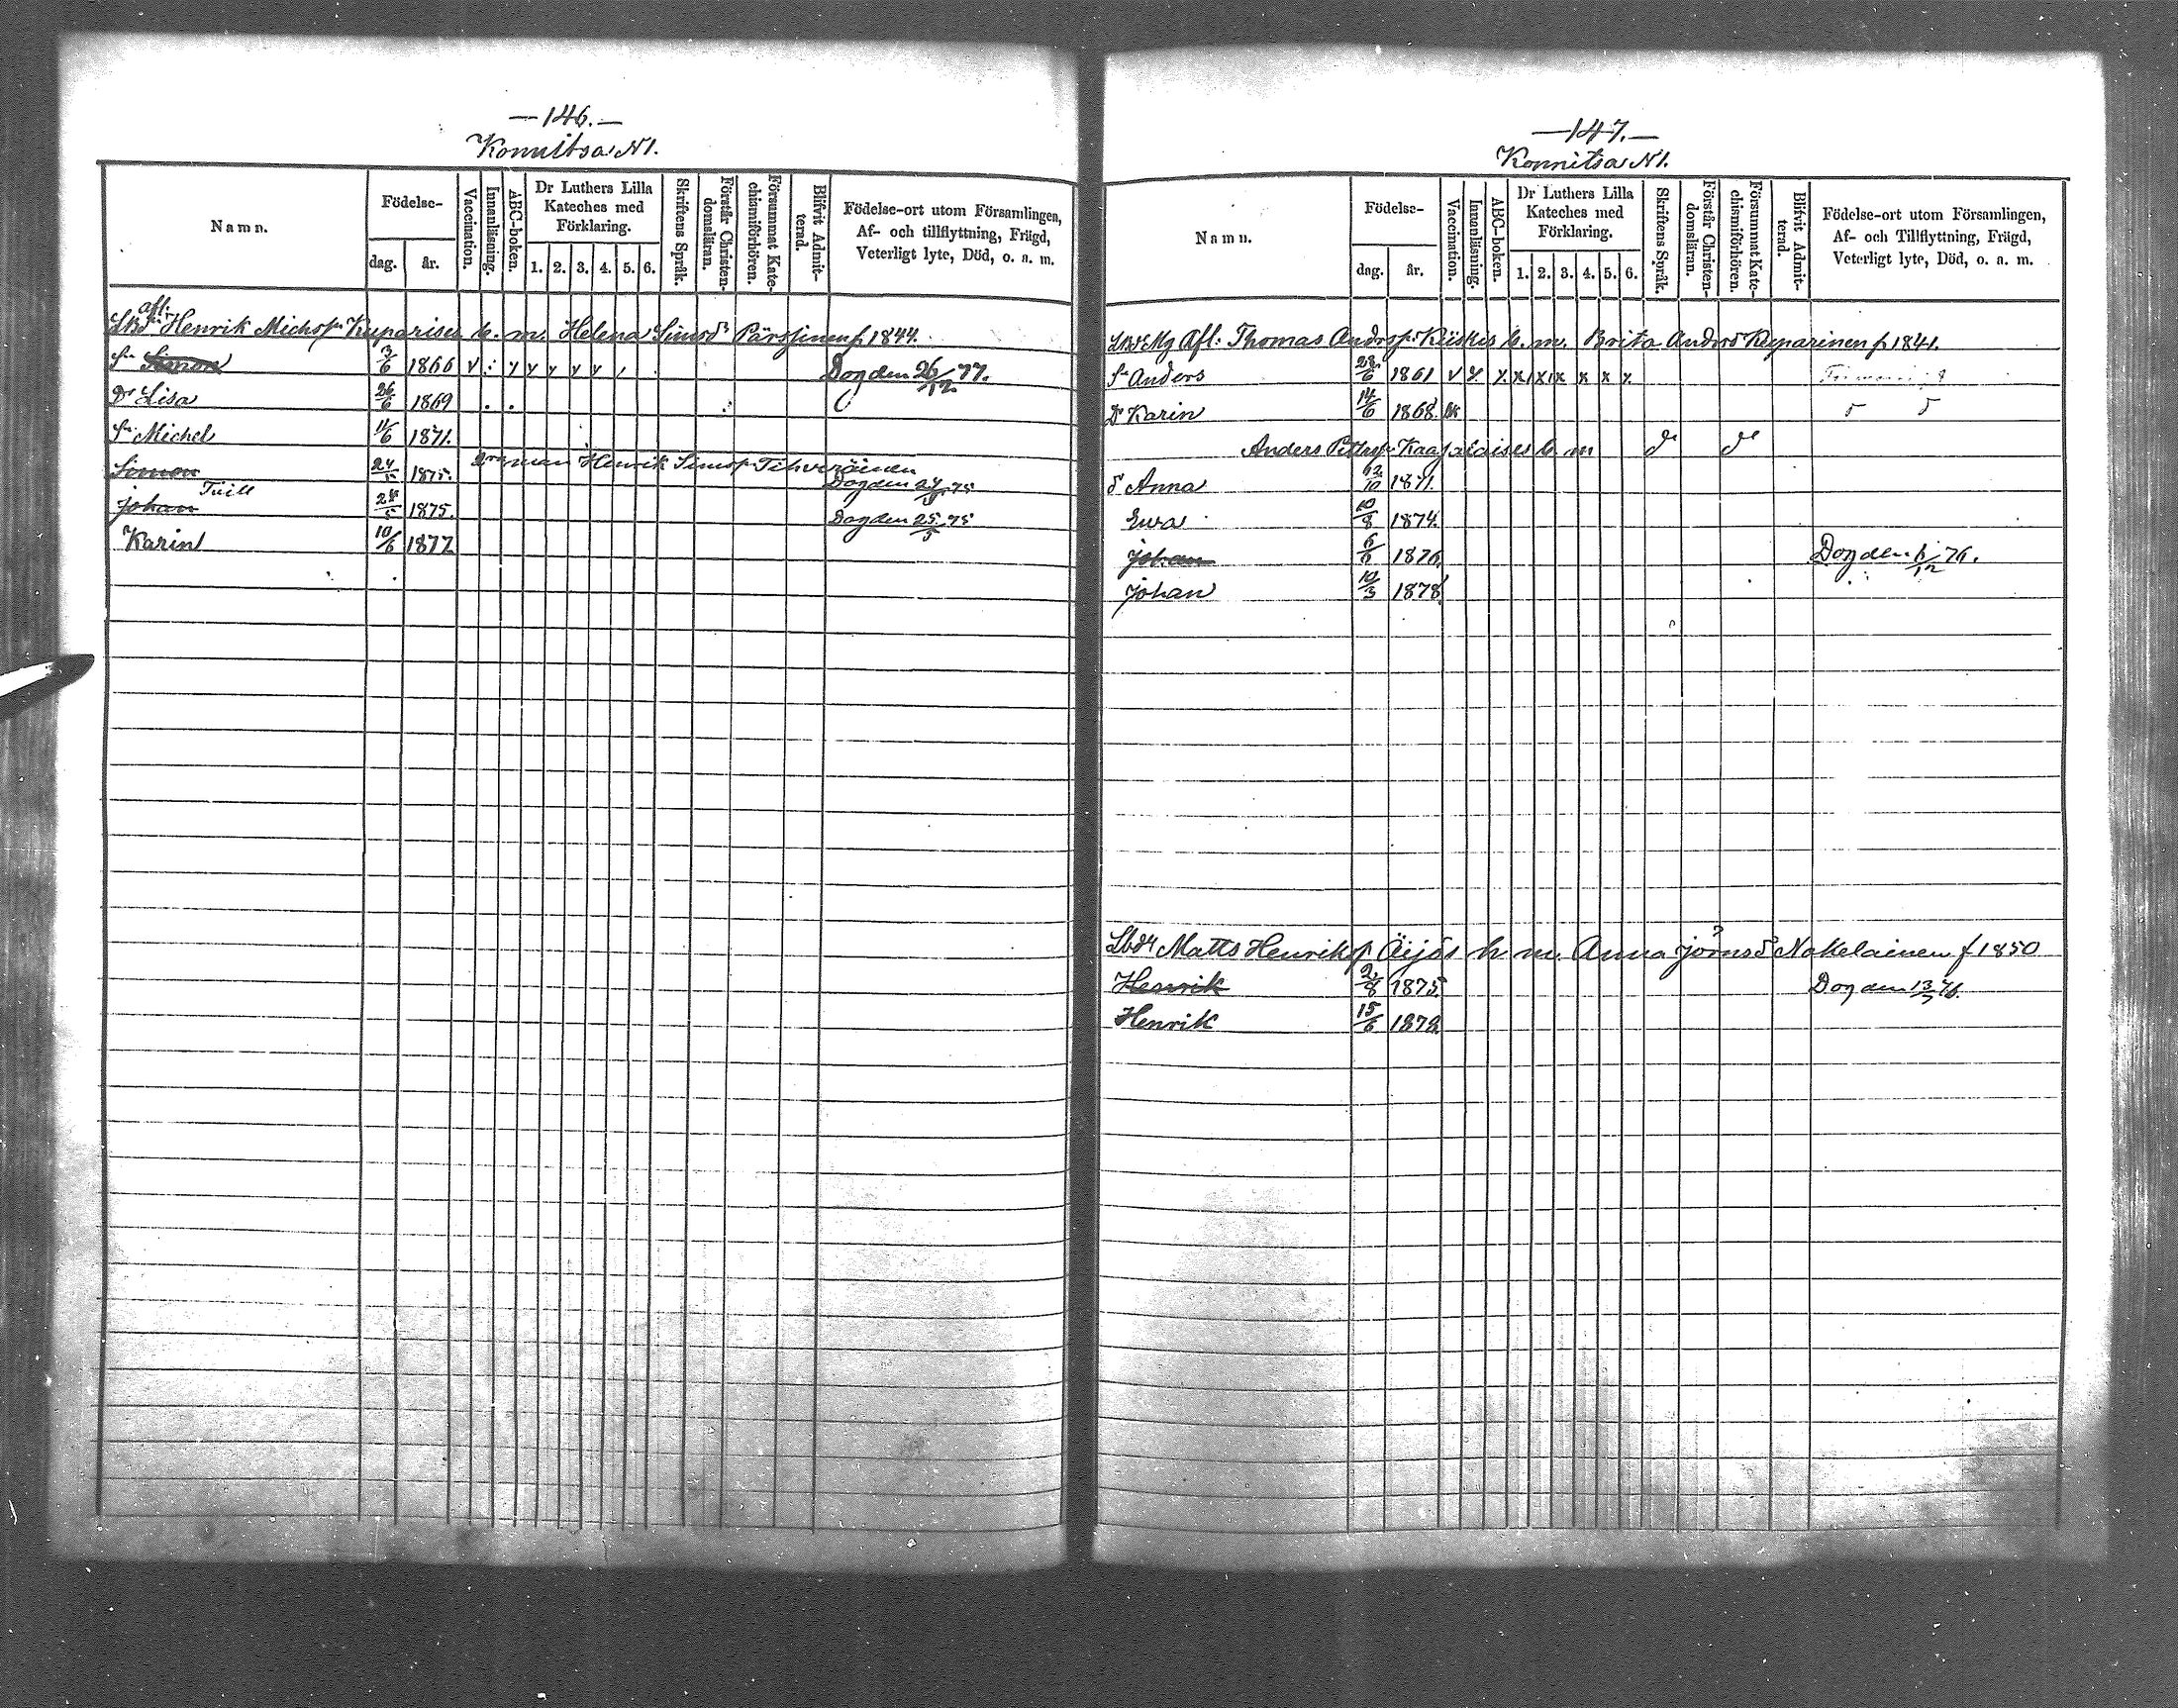 —146.—
Konnitsa N1.
Namn.
Födelse-
dag.
år.
Vaccination.
Innanläsning.
ABC-boken.
Dr Luthers Lilla
Kateches med
Förklaring.
1. 2. 3. 4. 5. 6.
Skriftens Språk.
Förstår Christen-
domsläran.
Försummat Kate-
chismiförhören.
Blifvit Admit-
terad.
Födelse-ort utom Församlingen,
Af- och tillflyttning, Frägd,
Veterligt lyte, Död, o. a. m.
afl:
Henrik Michsp Kuparises b. m. Helena Simsdr Pärssinen f. 1844.
Sn Simon 3/6 1866 v : y y y y y Dog den 26/12 77.
Dr Lisa 26/6 1869
Sn Michel 11/6 1871.
2ra man Henrik Simsp Tihveräinen
Simon 24/5 1875. Dog den 24/5 75
Tvill
Johan 24/5 1875. Dog den 25/5 75
Karin 10/6 1877
—147.—
Konnitsa N1.
Namn.
Födelse-
dag.
år.
Vaccination.
Innanläsning.
ABC-boken.
Dr Luthers Lilla
Kateches med
Förklaring.
1. 2. 3. 4. 5. 6.
Skriftens Språk.
Förstår Christen-
domsläran.
Försummat Kate-
chismiförhören.
Blifvit Admit-
terad.
Födelse-ort utom Församlingen,
Af- och Tillflyttning, Frägd,
Veterligt lyte, Död, o. a. m.
Afl: Thomas Andrsp Kiiskis b. m. Brita Andrsd Kuparinen f 1841.
Sn Anders 28/6 1861 v x x x x x x x x
Dr Karin 14/6 1868.
Anders Pettrsp b. m
Anna 1871.
Ewa 10/8 1874.
Johan 6/6 1876. Dog den 76.
Johan 10/3 1878
Matts Henriksp Äijös h m. Anna Jörnsd Nokelainen f 1850
Henrik 2/8 1875. Dog den 76.
Henrik 15/6 1878